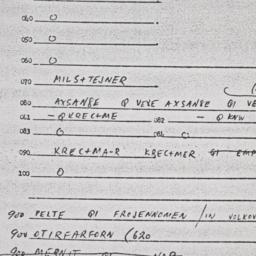 040 O
050 O
060 O
070 MILS+TEJNER
080 AXSANBE Q VEXE AXSANBE QI VE
081 - QKRECTME 082 - Q KNW
083 O 084 O
090 KREC+MA-R KRECTMER QI EMP
100 O
900 PELTE QI FROJENNOMEN / IN VOLKOV
900 OTIRFARFORN (620
900 MERNIT